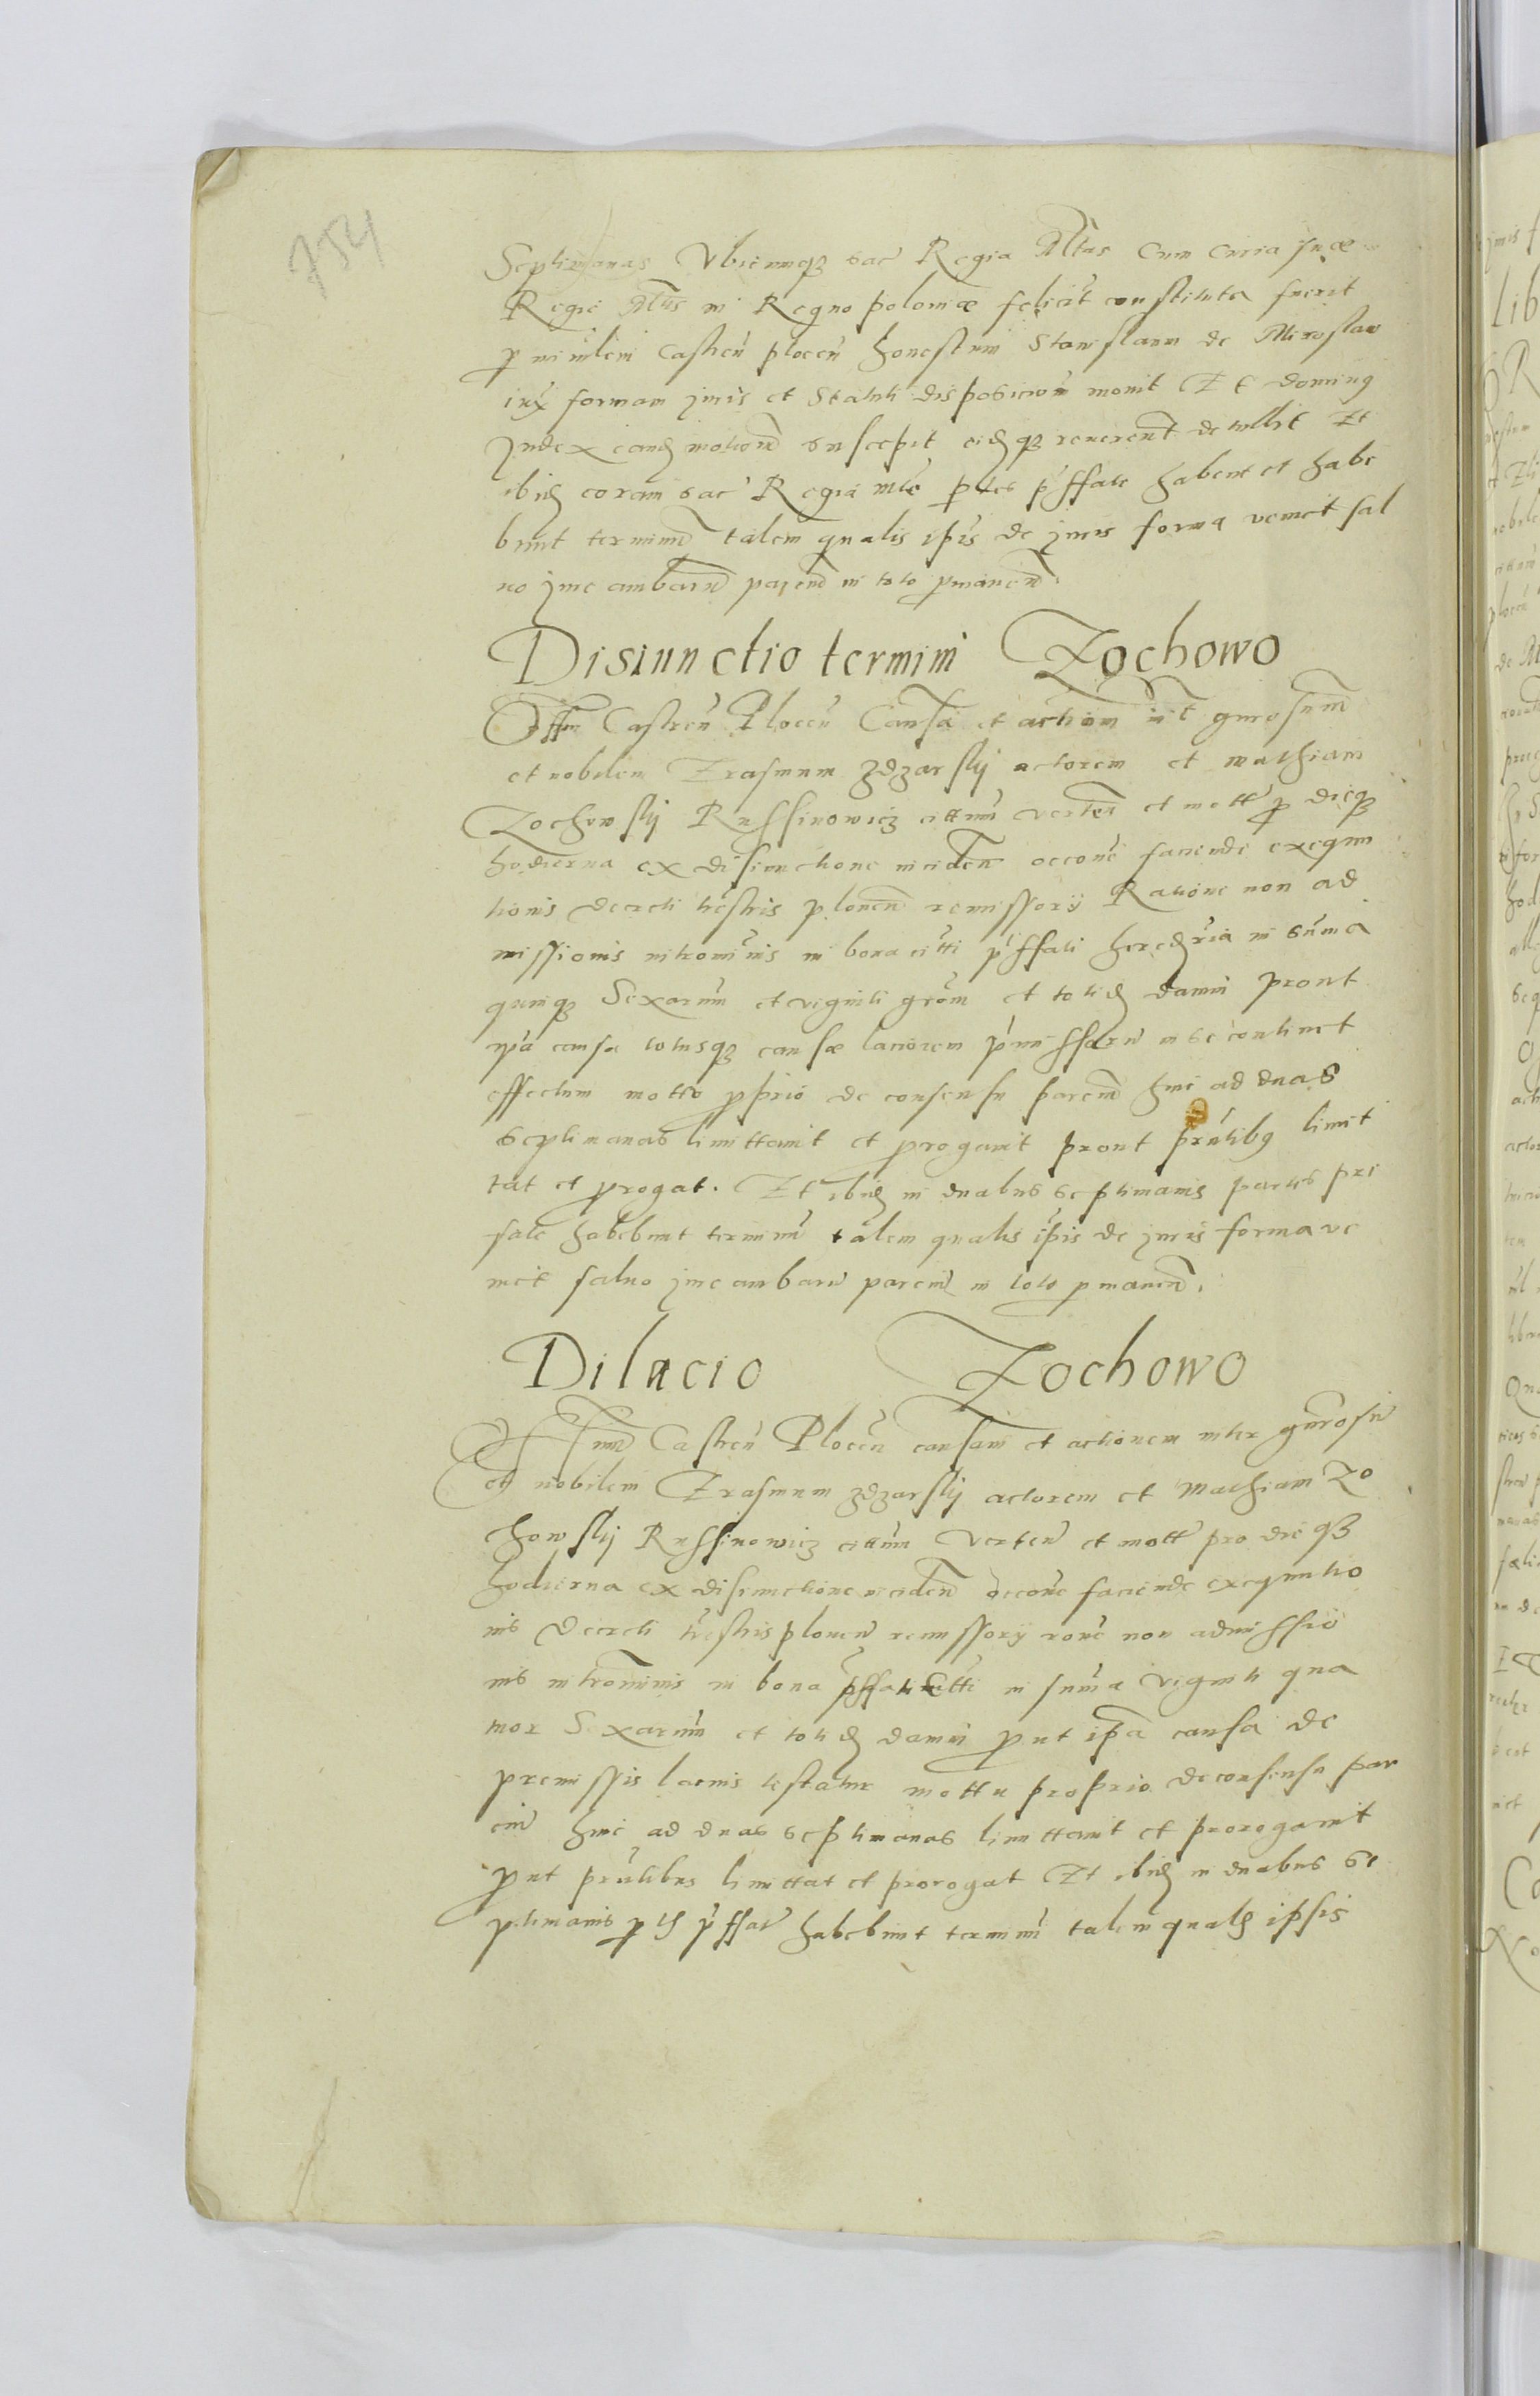 754
Septimanas Vbicunqȝ sac Regia Mtas Cum Curia suæ
Regie Mtis in Regno poloniæ feliciť constituta fuerit
p ministem Castren plocen honestum Stanislaum de Miroslaw
iux formam juris et Statuti disposicion monit Et dominus
Judex eand motionē suscepit eidqȝ reuerenť detullit Et
ibid coram sac Regia mte ptes pffate habent et habe
bunt terminū talem qualis ipis de juris forma veniet sal
uo jure ambarū parcium in toto pmanen
Disiunctio termini Zochowo
Offm Castren Plocen Causā et actiom int gnrosum
et nobilem Erasmum zdzarskij actorem et mathiam
Zochowskij Russinowicz cittum verten et mott p dieqȝ
hodierna ex disiunctione inciden occone faciende exequu
tionis decreti trestris plonen remissorij Ratione non ad
missionis intromiīs in bona citti pffati heredria in suma
quinqȝ Sexarum et viginti grom et totid damni prout
ipa causa totusqȝ causæ laciorem pmissarū in se continet
effectum motto pprio de consensu parciū hinc ad duas
septimanas limittauit et progauit prout prntibus limit
tat et progat. Et ibid in duabus septimanis partes pri
fate habebunt terminū talem qualis ipis de juris forma ve
niet saluo jure ambarū parciū in toto pmanen.
Dilacio Zochowo
Offm Castren Plocen causam et actionem inter gnrosū
et nobilem Erasmum zdzarskij actorem et Mathiam Zo
chowskij Russinowicz cittum verten et mott pro die qȝ
hodierna ex disiunctione inciden occone faciende exequutio
nis decreti trestris plonen remissorij rone non admissio
nis intromīnis in bona pffati Citti in suma viginti qua
tuor Sexarum et totid damni put ipa causa de
premissis lacius testatur mottu proprio de consensu par
ciū hinc ad duas septimanas limittauit et prorogauit
put prntibus limittat et prorogat Et ibid in duabus se
ptimanis ptes pffate habebunt terminū talem qualis ipsis